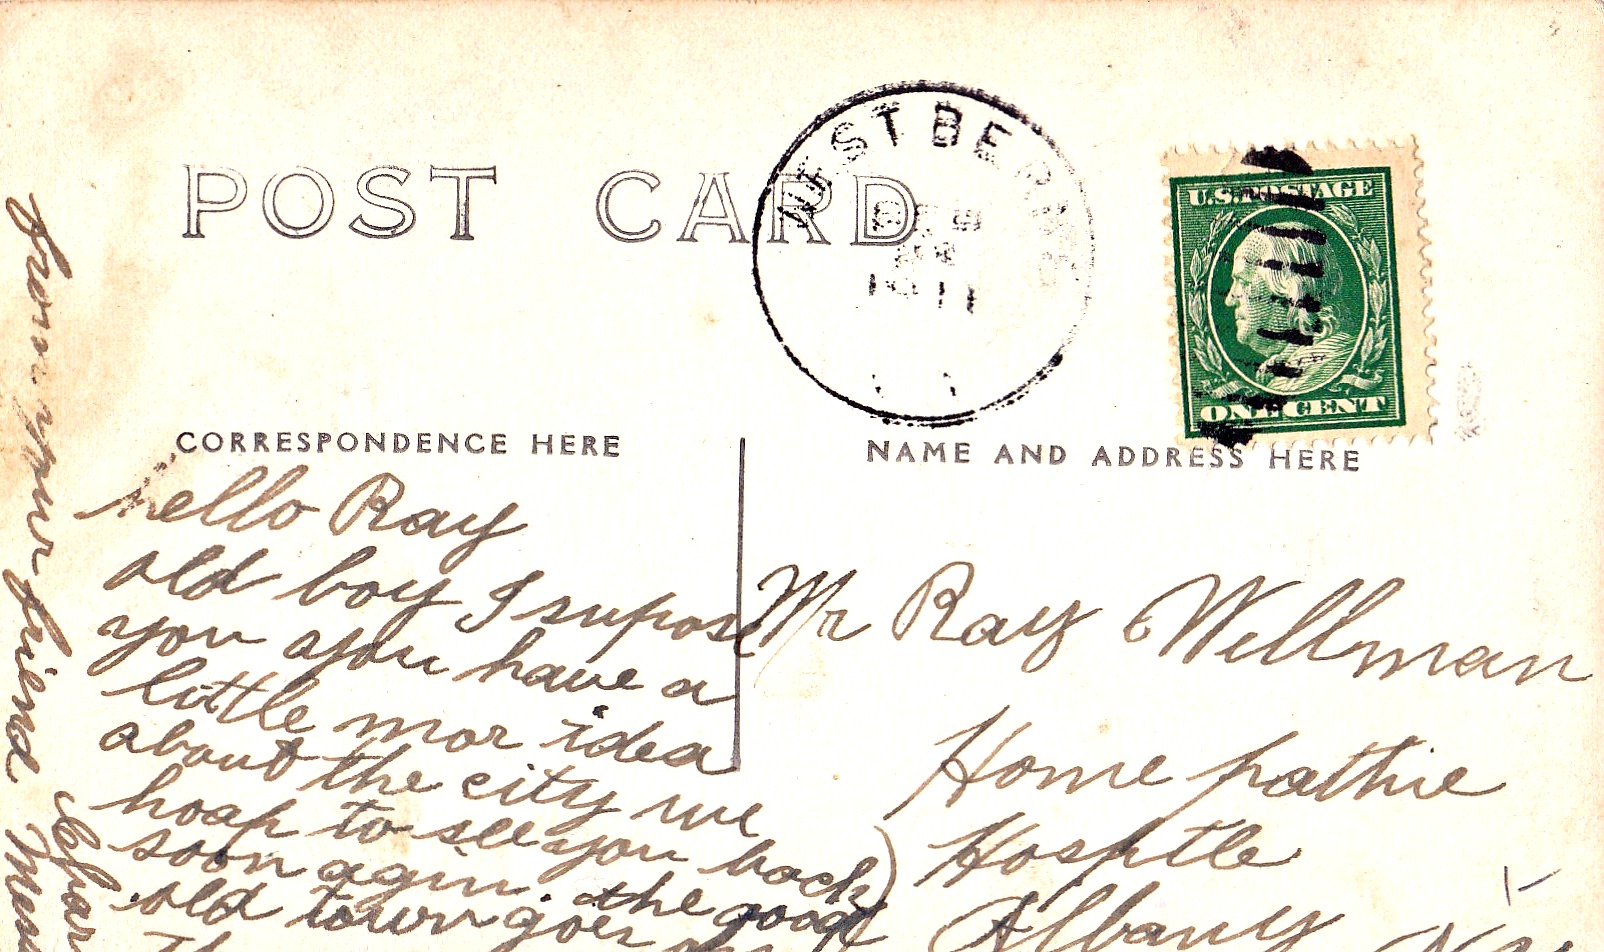 POST CARD
WEST BERNE
1911
U.S. POSTAGE
ONE CENT
CORRESPONDENCE HERE
NAME AND ADDRESS HERE
hello Ray
old boy I supose
you you have a
little mor idea
about the city we
hoap to see you back
soon agin. the good
old town goes
Mr Ray Willman
Home pathie
Hosptle
Albany
from your friend